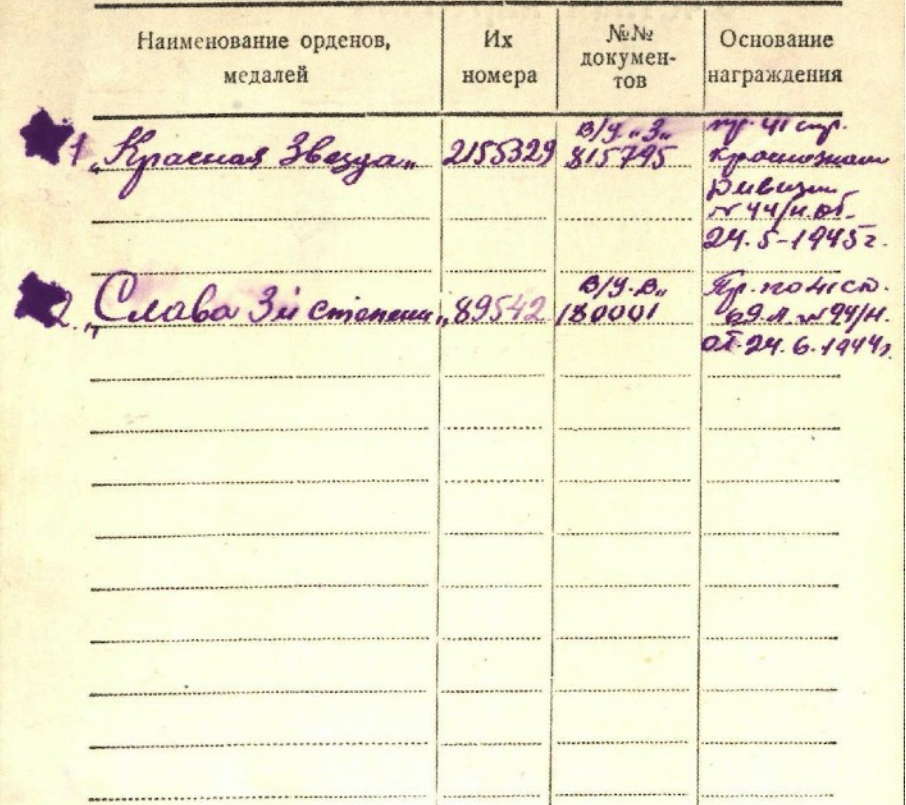 Наименование орденов, медалей
Их номера
№№ докумен-
тов
Основание награждения
1 „Красная Звезда„ 2155329
в/у „З„
815795
пр. 41 стр.
Краснознам
дивизии
№ 44/н. от.
24.5-1945г.
2. „Слава 3й степени„ 89542
в/у. В„
180001
Пр. по 41 сд.
69.А. № 94/н.
от. 24.6.1944г.